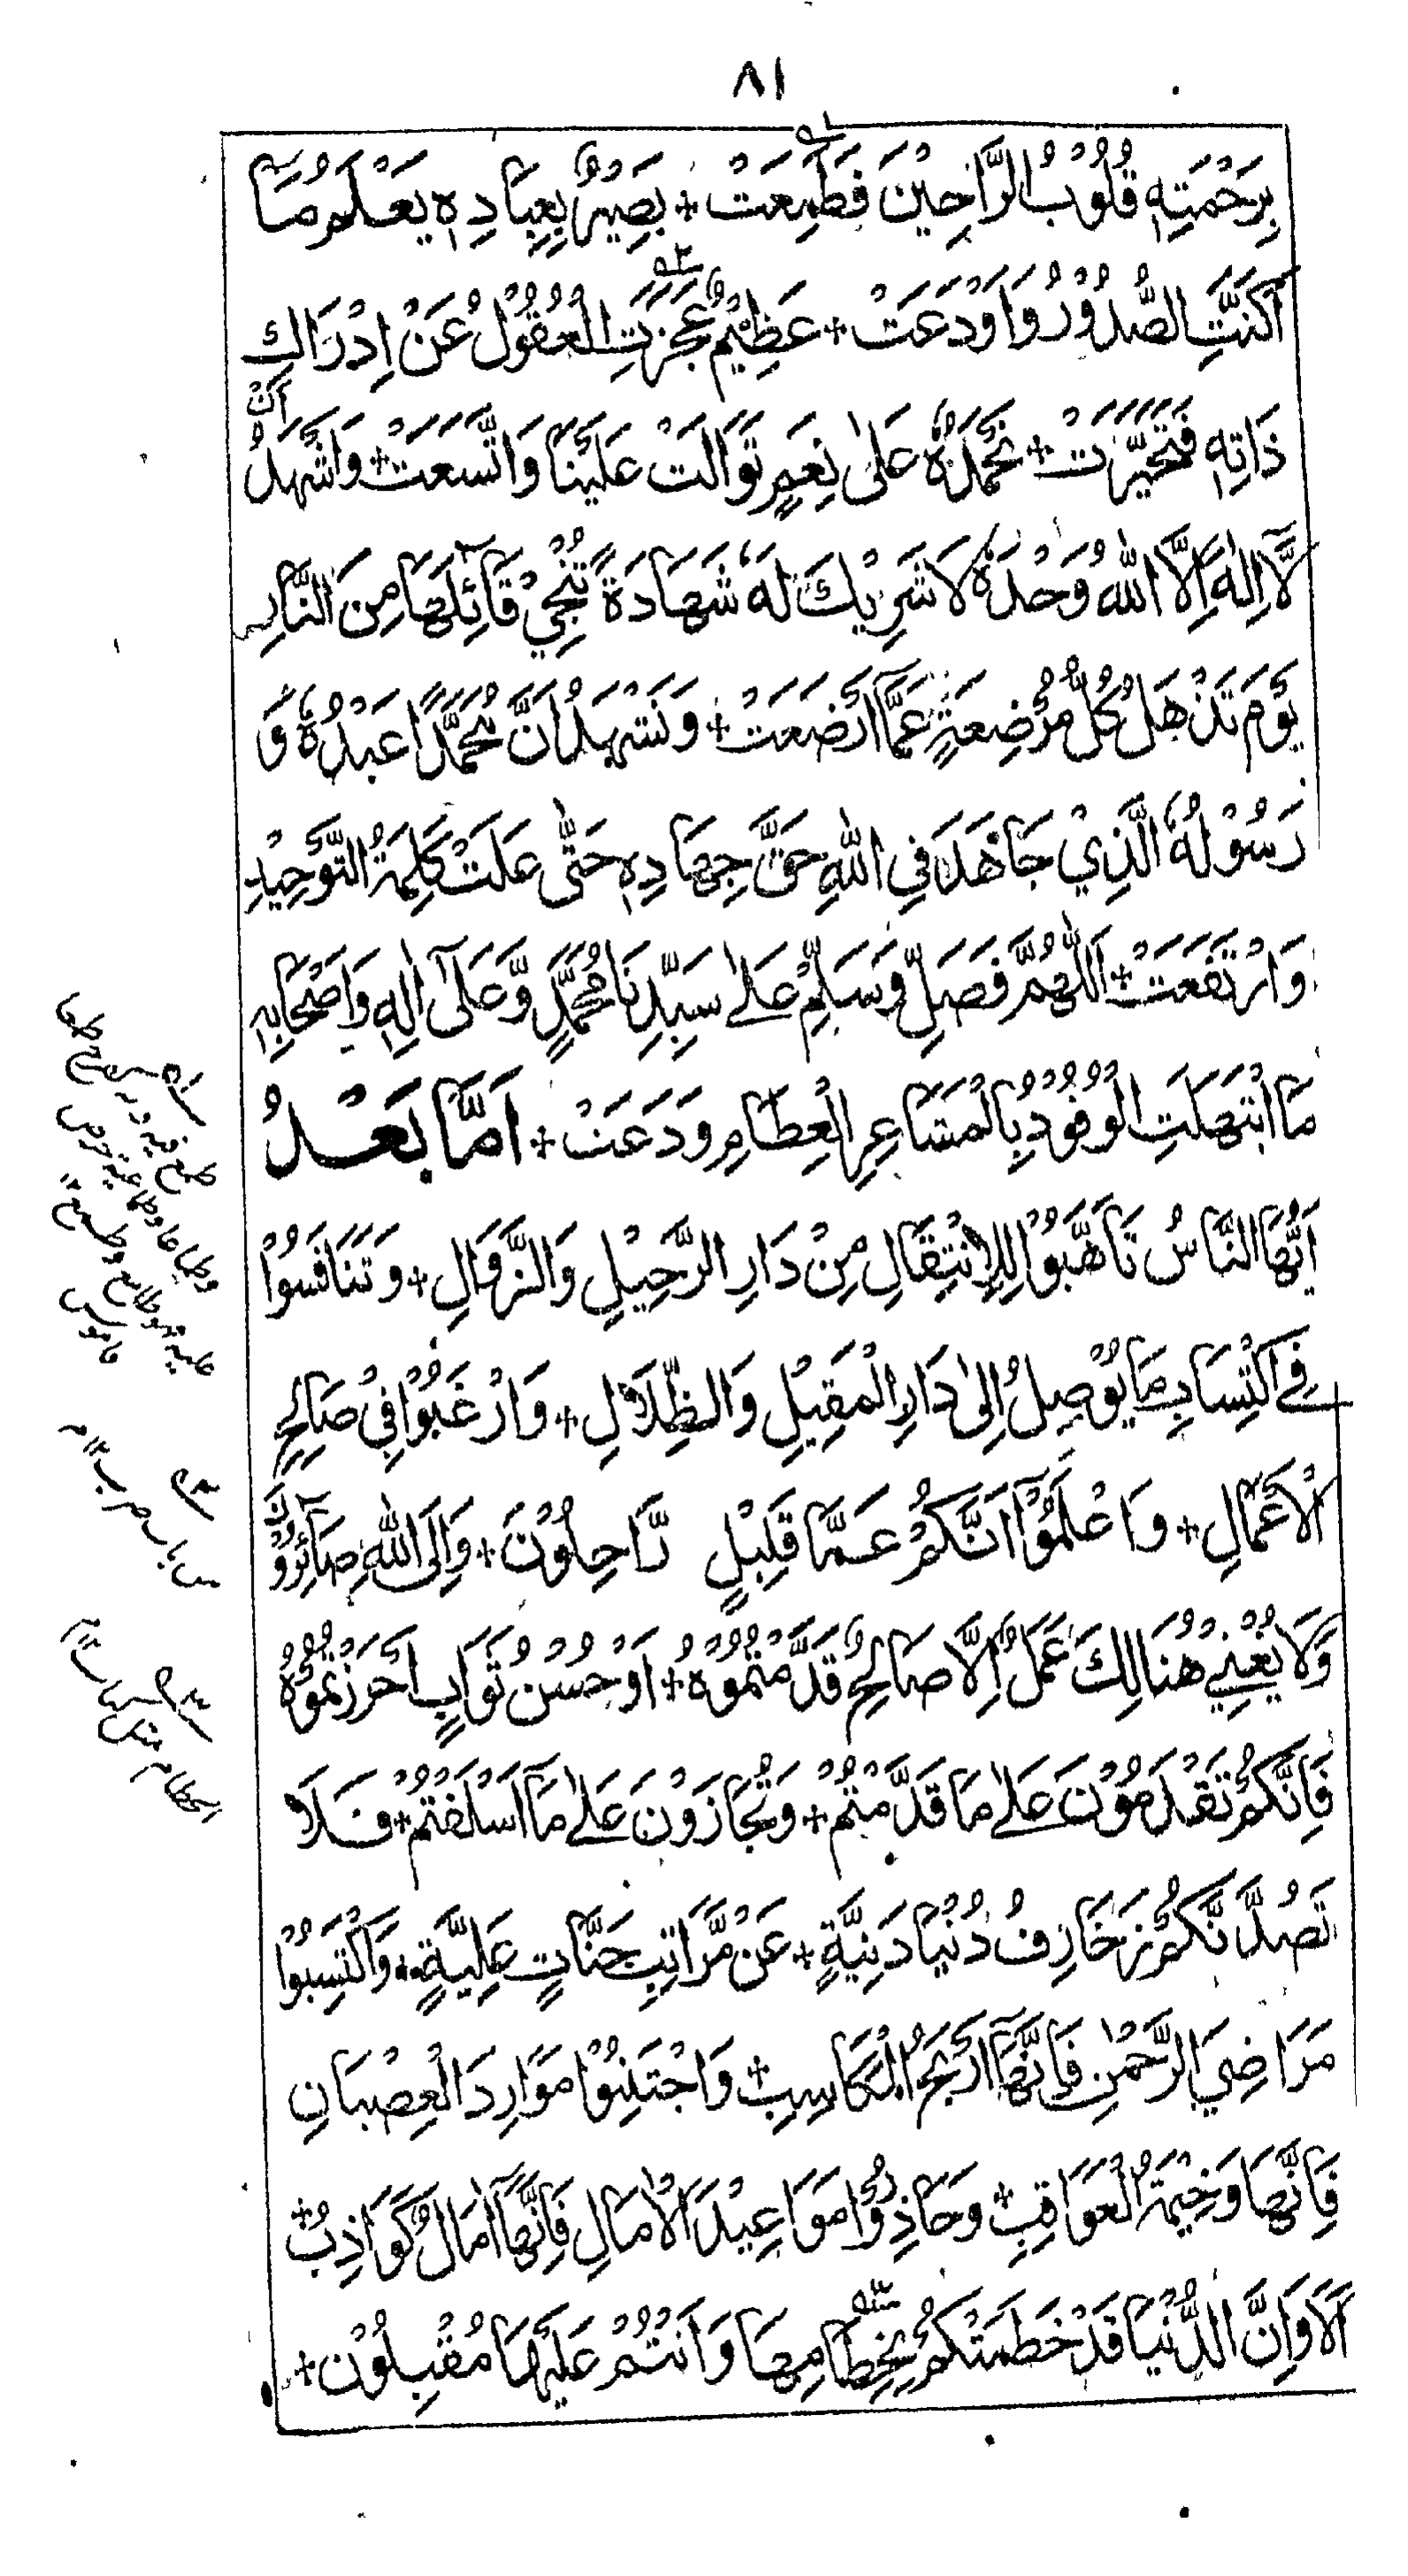 ٨١
بِرَحْمَتِهٖ قُلُوْبُ الرَّاجِيْنَ فَطَمِعَتْ + بَصِيْرٌ بِعِبَادِهٖ يَعْلَمُ مَآ
اَكَنَّتِ الصُّدُوْرُ وَاَوْدَعَتْ + عَظِيْمٌ عَجَزَتِ الْعُقُوْلُ عَنْ اِدْرَاكِ
ذَاتِهٖ فَتَحَيَّرَتْ + نَحْمَدُهٗ عَلٰى نِعَمٍ تَوَالَتْ عَلَيْنَا وَاتَّسَعَتْ + وَاَشْهَدُ اَنْ
لَّآ اِلٰهَ اِلَّا اللّٰهُ وَحْدَهٗ لَا شَرِيْكَ لَهٗ شَهَادَةً تُنْجِيْ قَآئِلَهَا مِنَ النَّارِ
يَوْمَ تَذْهَلُ كُلُّ مُرْضِعَةٍ عَمَّآ اَرْضَعَتْ + وَنَشْهَدُ اَنَّ مُحَمَّدًا عَبْدُهٗ وَ
رَسُوْلُهٗ الَّذِيْ جَاهَدَ فِي اللّٰهِ حَقَّ جِهَادِهٖ حَتّٰى عَلَتْ كَلِمَةُ التَّوْحِيْدِ
وَارْتَفَعَتْ + اَللّٰهُمَّ فَصَلِّ وَسَلِّمْ عَلٰى سَيِّدِنَا مُحَمَّدٍ وَّعَلٰٓى اٰلِهٖ وَاَصْحَابِهٖ
مَا ابْتَهَلَتِ الْوُفُوْدُ بِالْمَشَاعِرِ الْعِظَامِ وَدَعَتْ + اَمَّا بَعْدُ
اَيُّهَا النَّاسُ تَاَهَّبُوْا لِلِانْتِقَالِ مِنْ دَارِ الرَّحِيْلِ وَالزَّوَالِ + وَتَنَافَسُوْا
فِے اكْتِسَابِ مَا يُوْصِلُ اِلٰى دَارِ الْمَقِيْلِ وَالظِّلَالِ + وَارْغَبُوْا فِيْ صَالِحِ
الْاَعْمَالِ + وَاعْلَمُوْٓا اَنَّكُمْ عَمَّا قَلِيْلٍ رَّاحِلُوْنَ + وَاِلَى اللّٰهِ صَآئِرُوْنَ
وَلَا يُغْنِيْ هُنَالِكَ عَمَلٌ اِلَّا صَالِحٌ قَدَّمْتُمُوْهُ + اَوْ حُسْنُ ثَوَابٍ اَحْرَزْتُمُوْهُ
فَاِنَّكُمْ تَقْدَمُوْنَ عَلٰى مَا قَدَّمْتُمْ + وَتُجَازَوْنَ عَلٰى مَآ اَسْلَفْتُمْ + فَلَا
تَصُدَّنَّكُمْ زَخَارِفُ دُنْيَا دَنِيَّةٍ + عَنْ مَّرَاتِبِ جَنَّاتٍ عَلِيَّةٍ + وَاكْتَسِبُوْا
مَرَاضِيَ الرَّحْمٰنِ فَاِنَّهَآ اَرْبَحُ الْمَكَاسِبِ + وَاجْتَنِبُوْا مَوَارِدَ الْعِصْيَانِ
فَاِنَّهَا وَخِيْمَةُ الْعَوَاقِبِ + وَحَاذِرُوْا مَوَاعِيْدَ الْاٰمَالِ فَاِنَّهَآ اٰمَالٌ كَوَاذِبُ +
اَلَا وَاِنَّ الدُّنْيَا قَدْ خَطَمَتْكُمْ بِخِطَامِهَا وَاَنْتُمْ عَلَيْهَا مُقْبِلُوْنَ +
طمع فيه وبه
قاموس